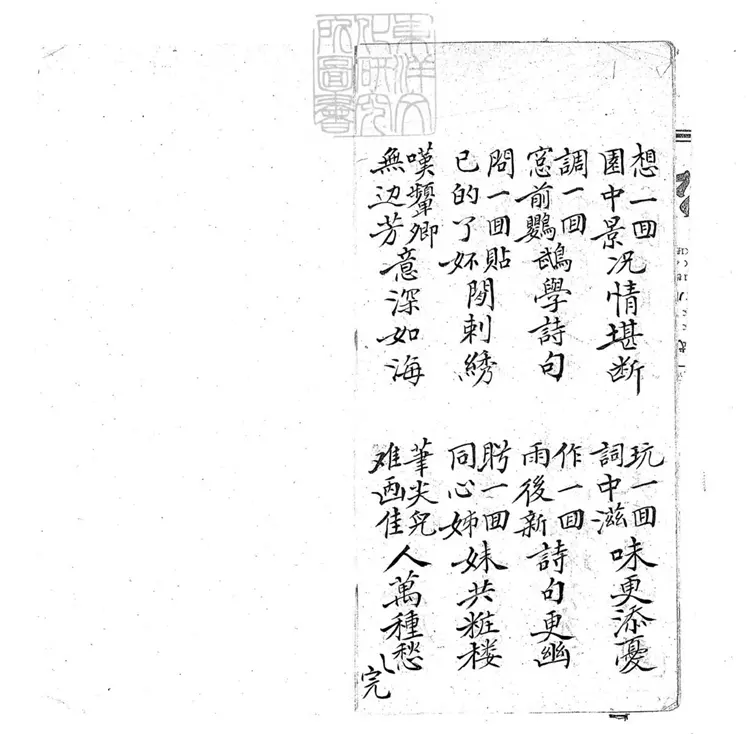 東洋文化研究所圖書
想一回園中景况情堪断
玩一回詞中滋味更添憂
調一回窓前鸚鵡學詩句
作一回雨後新詩句更幽
問一回貼已的了妚閒刺綉
盻一回同心姊妹共粧楼
嘆顰卿無边芳意深如海
筆尖兒难画佳人萬種愁
完